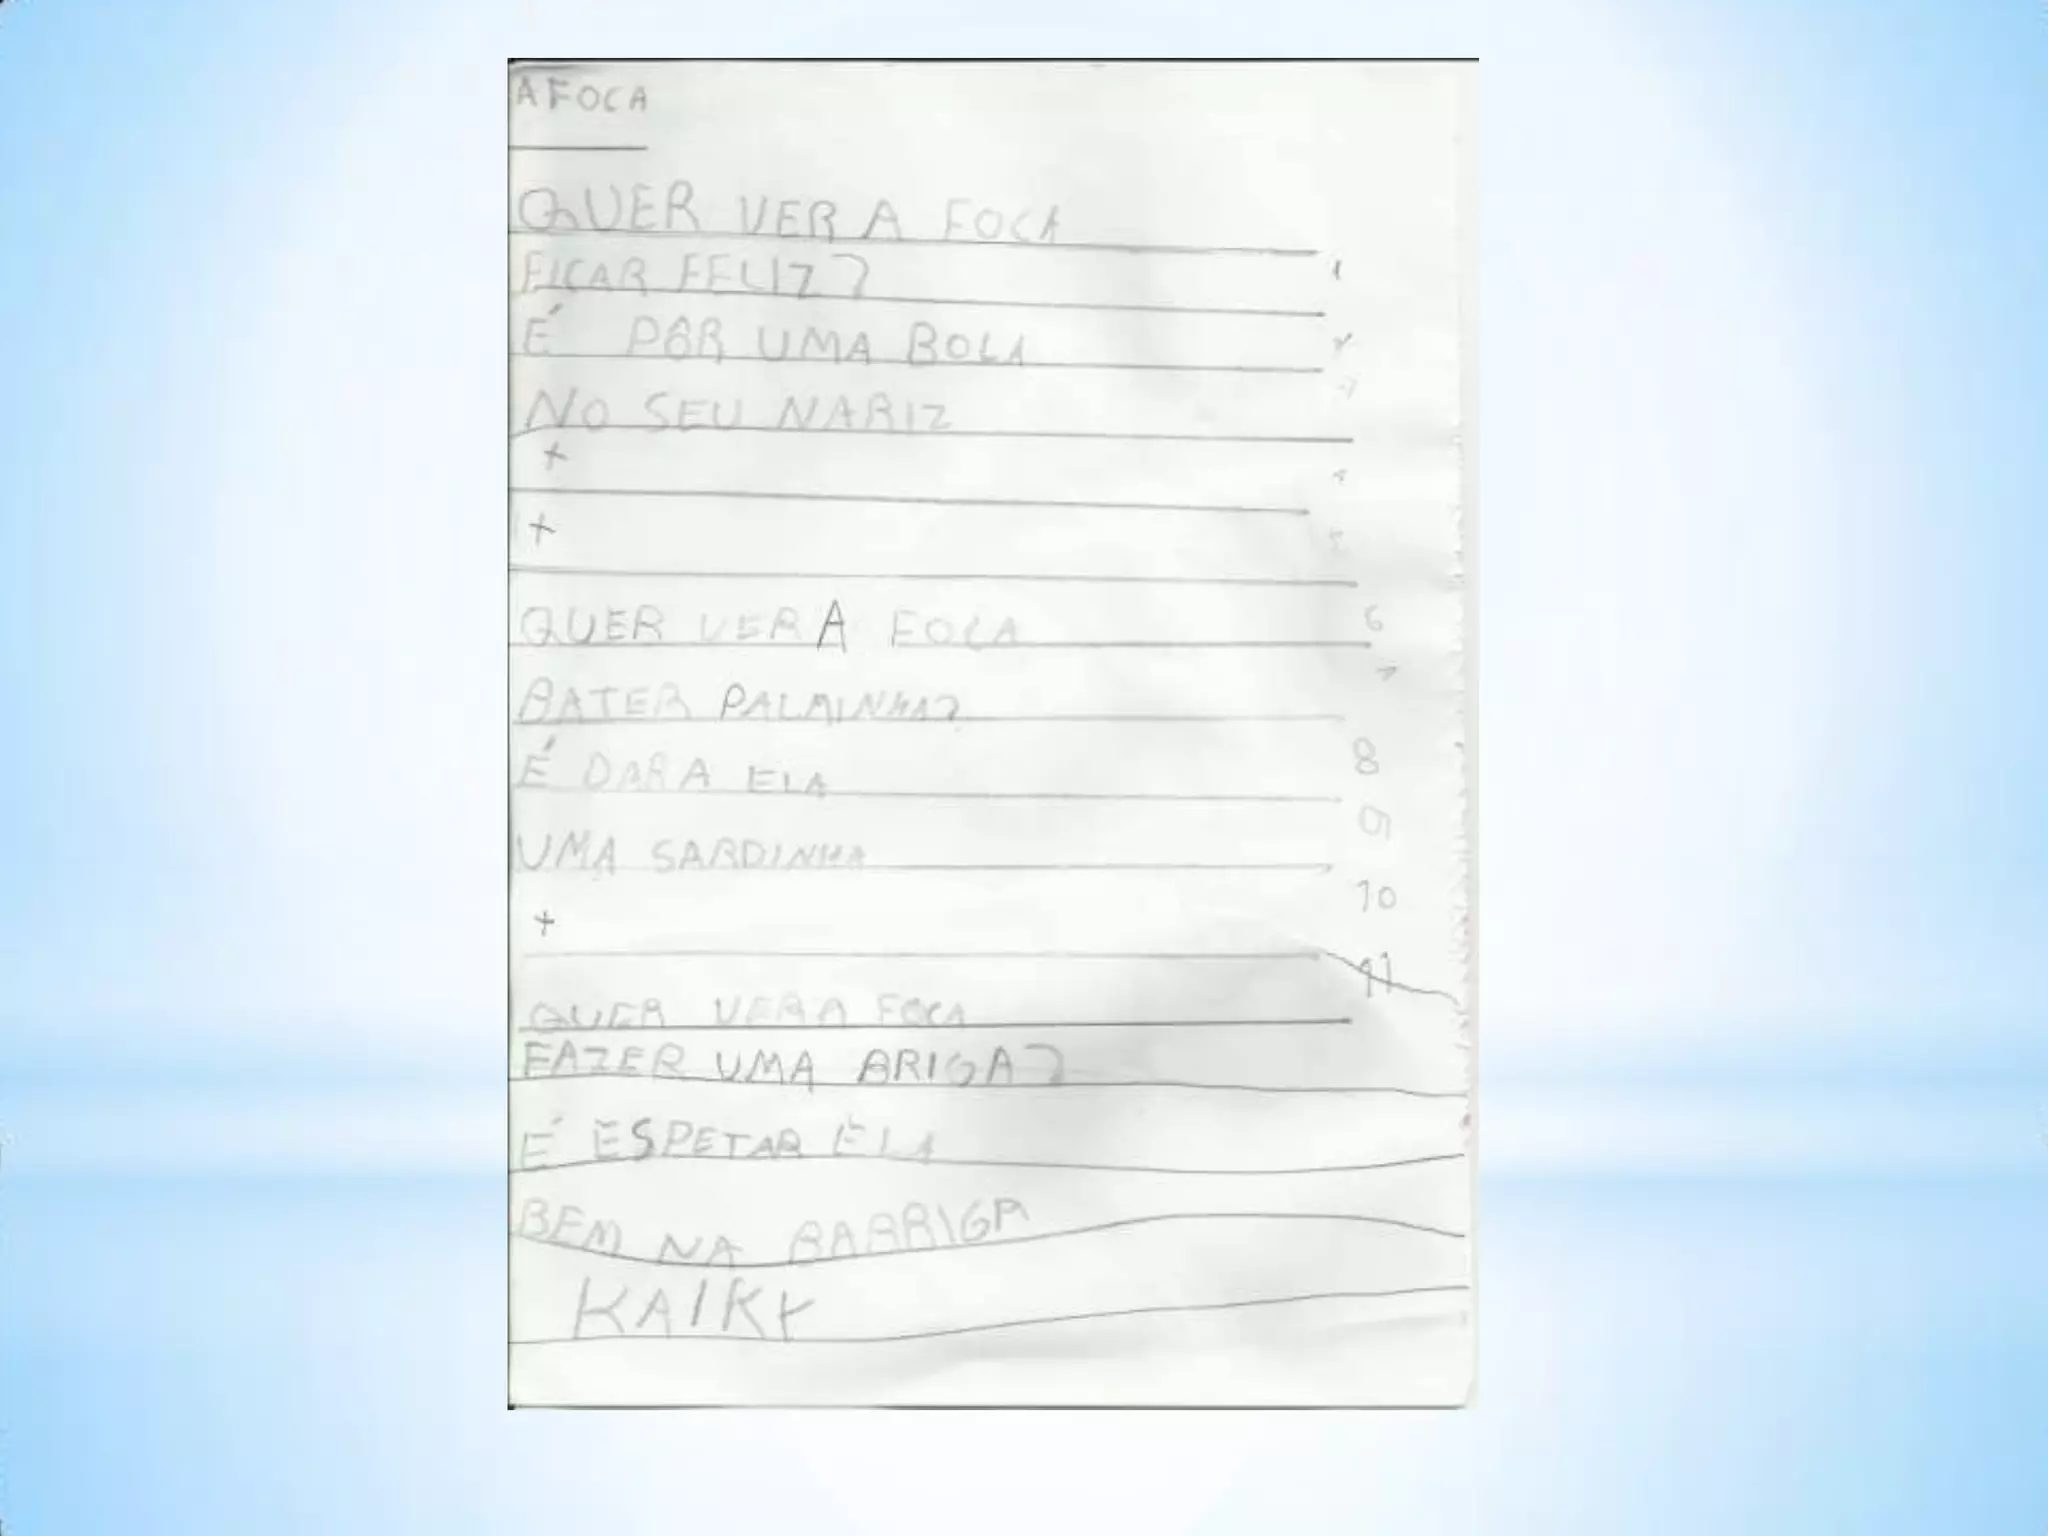 A FOCA
QUER VER A FOCA
FICAR FELIZ?
1
É PÔR UMA BOLA
2
3
NO SEU NARIZ
+
4
+
5
QUER VER A FOCA
6
7
BATER PALMINHA?
É DAR A ELA
8
9
UMA SARDINHA
10
+
11
QUER VER A FOCA
FAZER UMA BRIGA?
É ESPETAR ELA
BEM NA BARRIGA
KAIKY